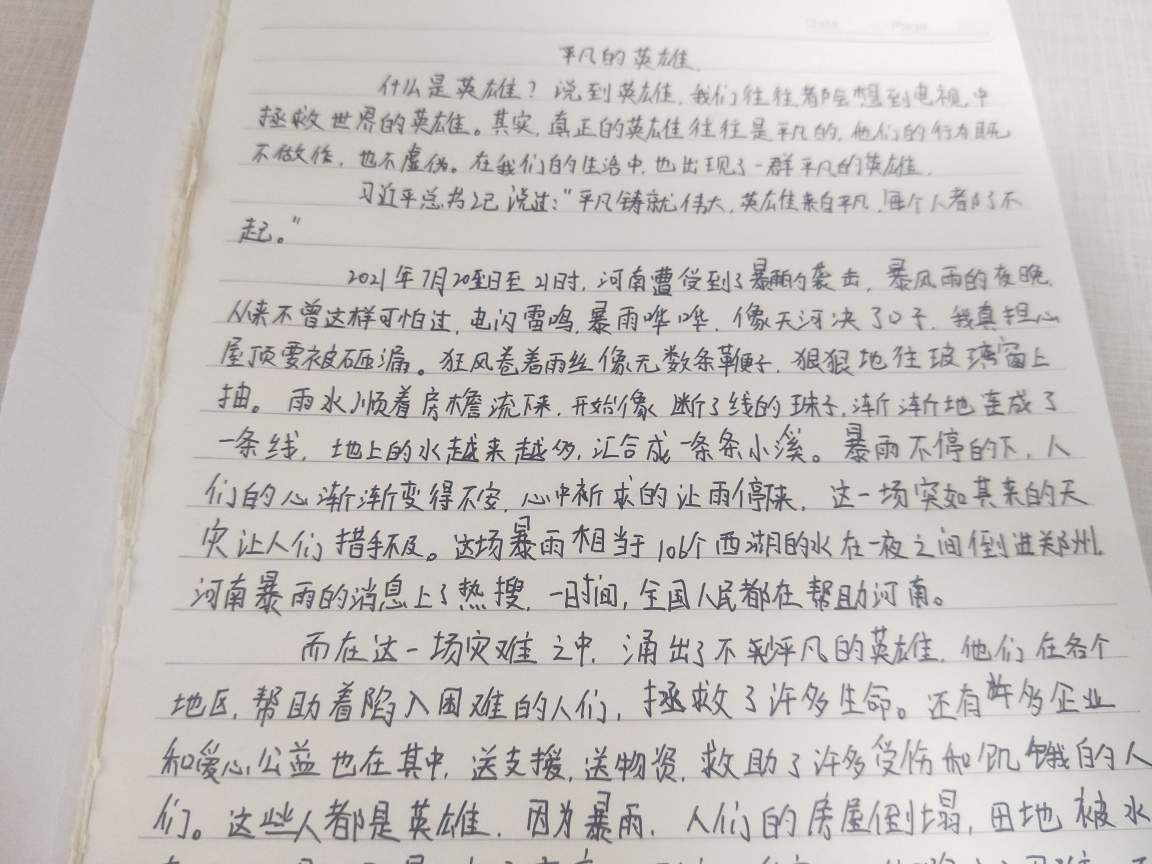 Date Page
平凡的英雄
什么是英雄？说到英雄，我们往往都会想到电视中
拯救世界的英雄。其实，真正的英雄往往是平凡的，他们的行为既
不做作，也不虚伪。在我们的生活中，也出现了一群平凡的英雄．
习近平总书记说过：“平凡铸就伟大，英雄来自平凡，每个人都了不
起。”
2021年7月20日至21时，河南曹受到了暴雨的袭击，暴风雨的夜晚，
从来不曾这样可怕过，电闪雷鸣，暴雨哗哗，像天河决了口子，我真担心
屋顶要被砸漏。狂风卷着雨丝像无数条鞭子，狠狠地往玻璃窗上
抽。雨水顺着房檐流下来，开始像断了线的珠子，渐渐地连成了
一条线，地上的水越来越多，汇合成一条条小溪。暴雨不停的下，人
们的心渐渐变得不安，心中祈求的让雨停下来，这一场突如其来的天
灾让人们措手不及。这场暴雨相当于106个西湖的水在一夜之间倒进郑州，
河南暴雨的消息上了热搜，一时间，全国人民都在帮助河南。
而在这一场灾难之中，涌出了不少平凡的英雄，他们在各个
地区，帮助着陷入困难的人们，拯救了许多生命。还有许多企业
和爱心公益也在其中，送支援，送物资，救助了许多受伤和饥饿的人
们。这些人都是英雄，因为暴雨，人们的房屋倒塌，田地被水